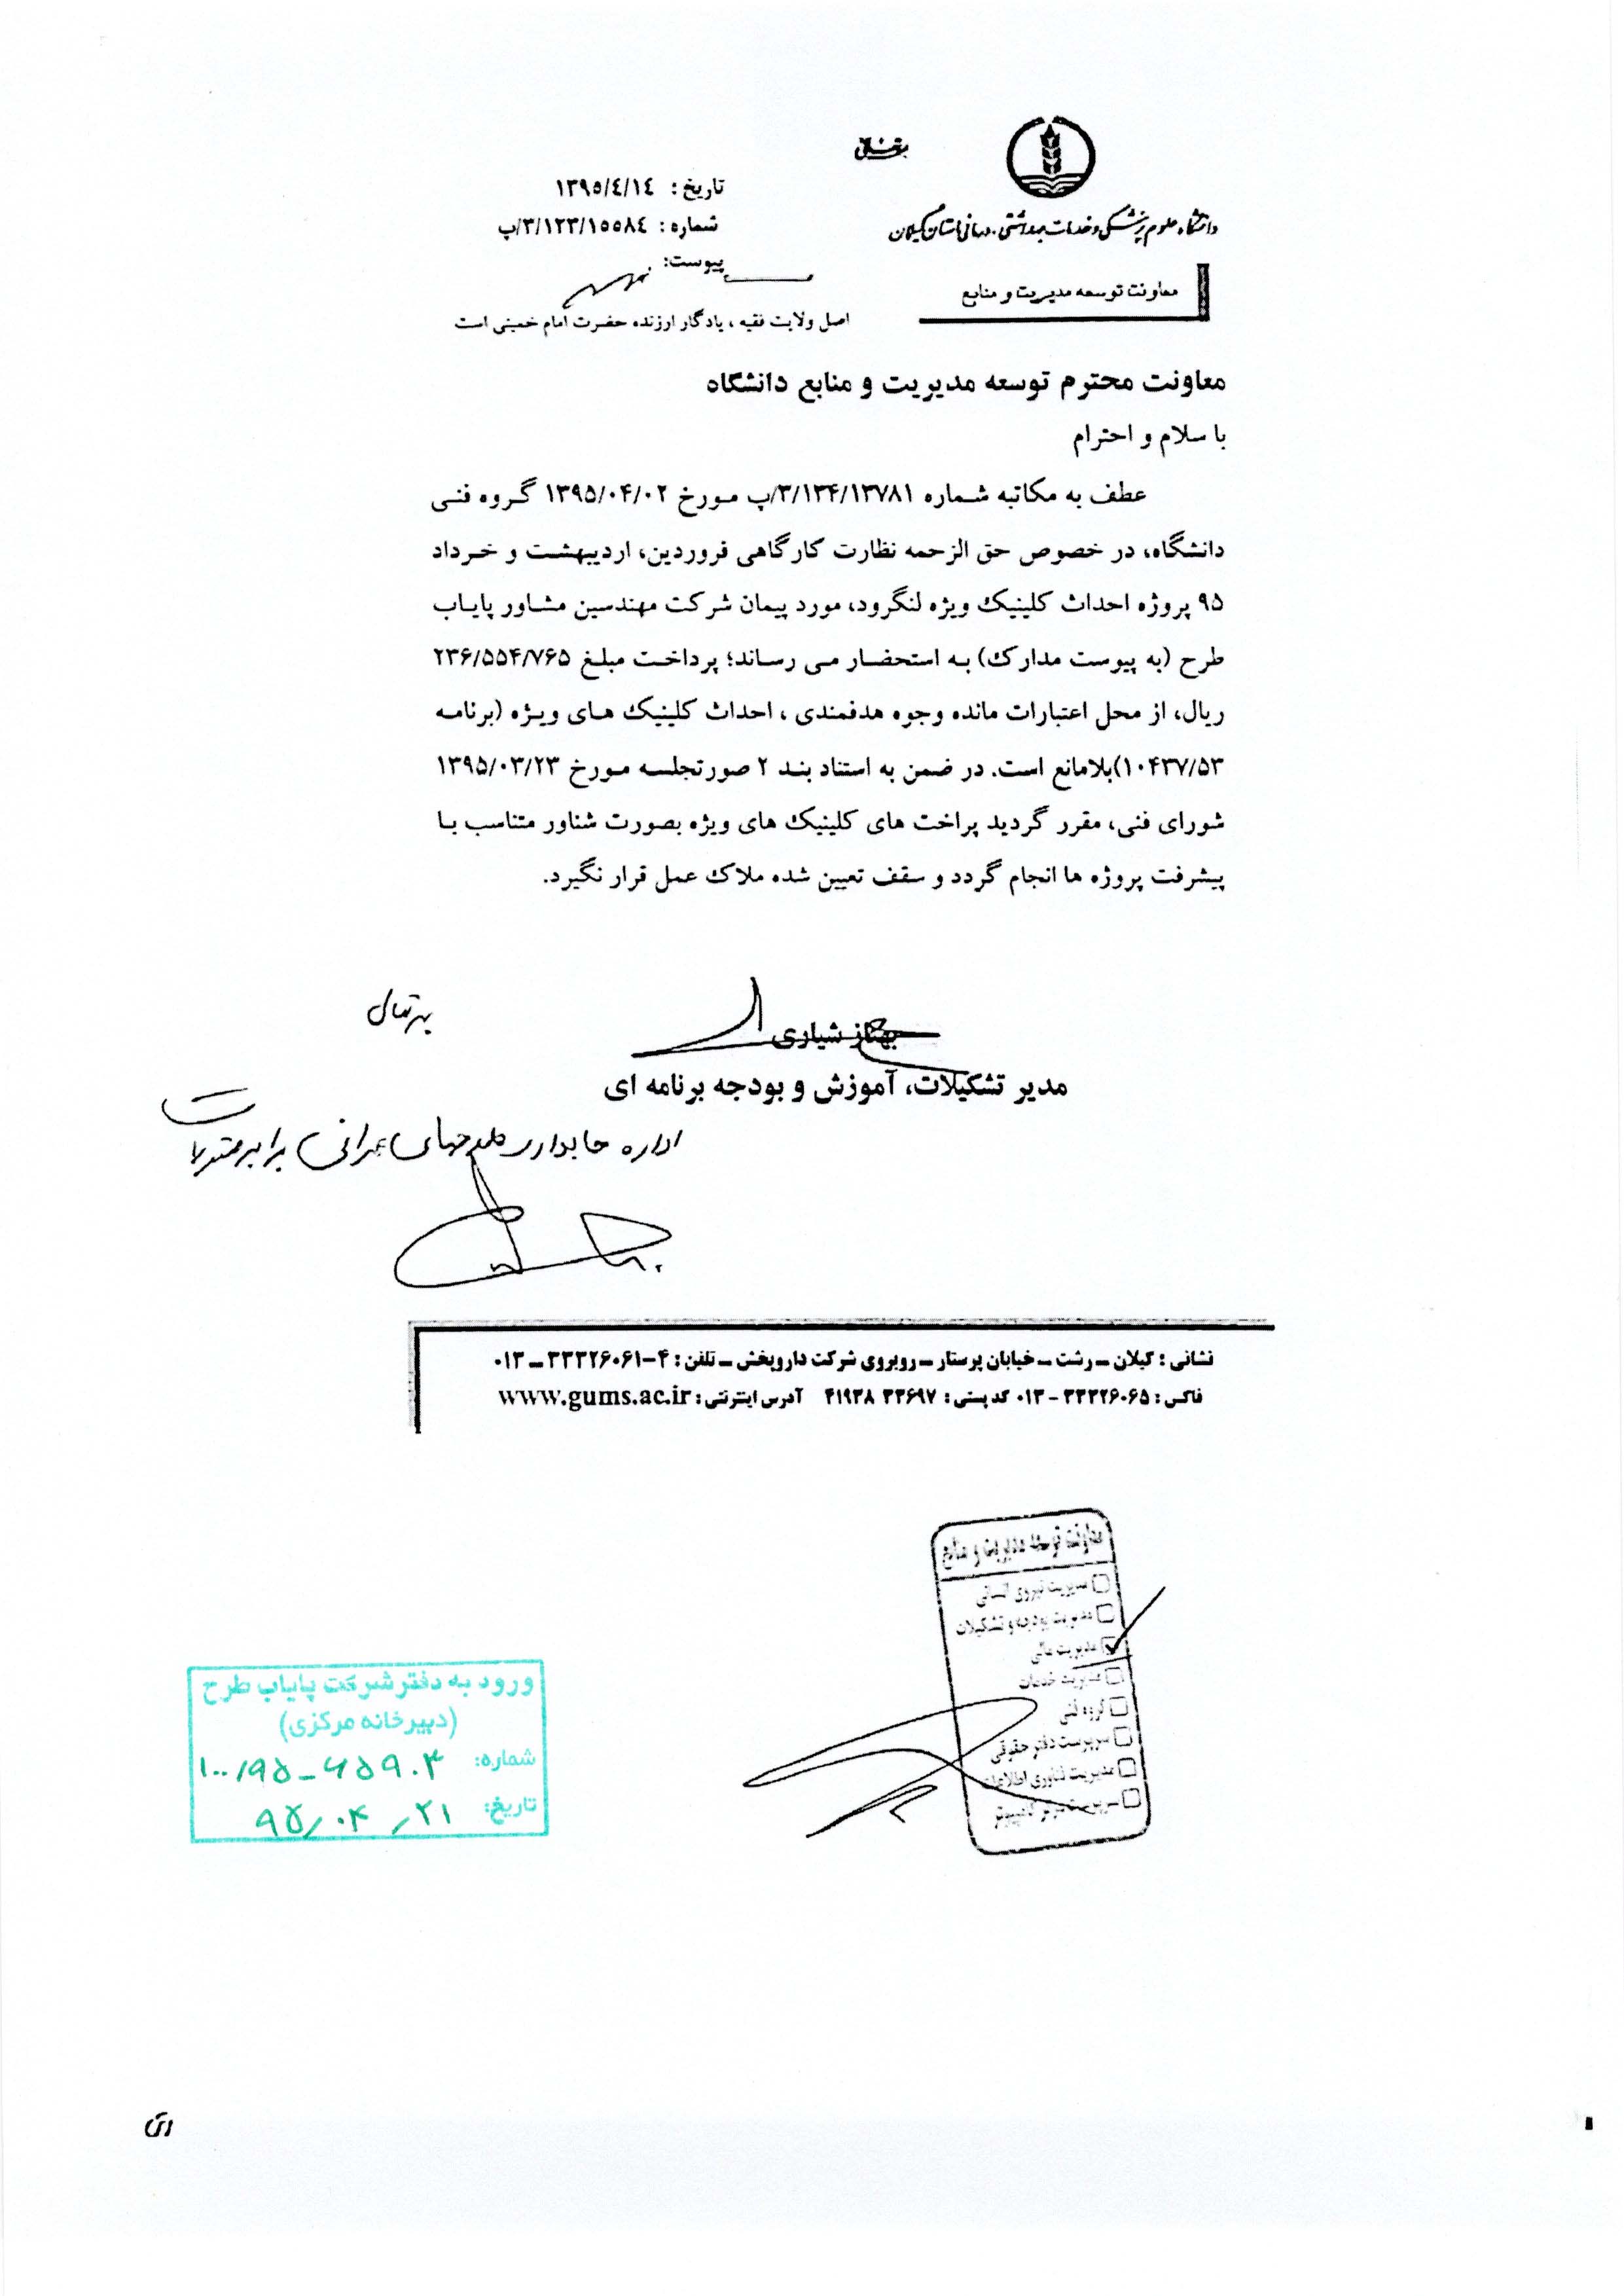 بسمه تعالی
دانشگاه علوم پزشکی و خدمات بهداشتی، درمانی استان گیلان
معاونت توسعه مدیریت و منابع
تاریخ: ١٣٩٥/٤/١٤
شماره: ٣/١٢٣/١٥٥٨٤/پ
پیوست:
اصل ولایت فقیه ، یادگار ارزنده حضرت امام خمینی است
معاونت محترم توسعه مدیریت و منابع دانشگاه
با سلام و احترام
عطف به مکاتبه شماره ۳/۱۳۴/۱۳۷۸۱/پ مورخ ۱۳۹۵/۰۴/۰۲ گروه فنی
دانشگاه، در خصوص حق الزحمه نظارت کارگاهی فروردین، اردیبهشت و خرداد
۹۵ پروژه احداث کلینیک ویژه لنگرود، مورد پیمان شرکت مهندسین مشاور پایاب
طرح (به پیوست مدارک) به استحضار می رساند؛ پرداخت مبلغ ۲۳۶/۵۵۴/۷۶۵
ریال، از محل اعتبارات مانده وجوه هدفمندی ، احداث کلینیک های ویژه (برنامه
۱۰۴۳۷/۵۳)بلامانع است. در ضمن به استناد بند ۲ صورتجلسه مورخ ۱۳۹۵/۰۳/۲۳
شورای فنی، مقرر گردید پراخت های کلینیک های ویژه بصورت شناور متناسب با
پیشرفت پروژه ها انجام گردد و سقف تعیین شده ملاک عمل قرار نگیرد.
بهناز شیاری
مدیر تشکیلات، آموزش و بودجه برنامه ای
اداره حسابداری طرحهای عمرانی برابر مقررات
نشانی : گیلان – رشت – خیابان پرستار – روبروی شرکت داروپخش – تلفن : ۴-۳۳۳۲۶۰۶۱ – ۰۱۳
فاکس : ۳۳۳۲۶۰۶۵ - ۰۱۳ کد پستی : ۳۳۶۹۷ ۴۱۹۳۸ آدرس اینترنتی : www.gums.ac.ir
معاونت توسعه مدیریت و منابع
مدیریت نیروی انسانی
مدیریت بودجه و تشکیلات
مدیریت مالی
مدیریت خدمات
گروه فنی
سرپرست دفتر حقوقی
مدیریت فناوری اطلاعات
سرپرست مرکز کامپیوتر
ورود به دفتر شرکت پایاب طرح
(دبیرخانه مرکزی)
شماره: ۱۰۰/۹۵-۶۵۹۰۳
تاریخ: ۹۵/۰۴/۲۱